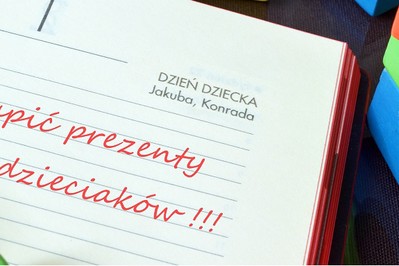 DZIEŃ DZIECKA
Jakuba, Konrada
upić prezenty
dzieciaków !!!